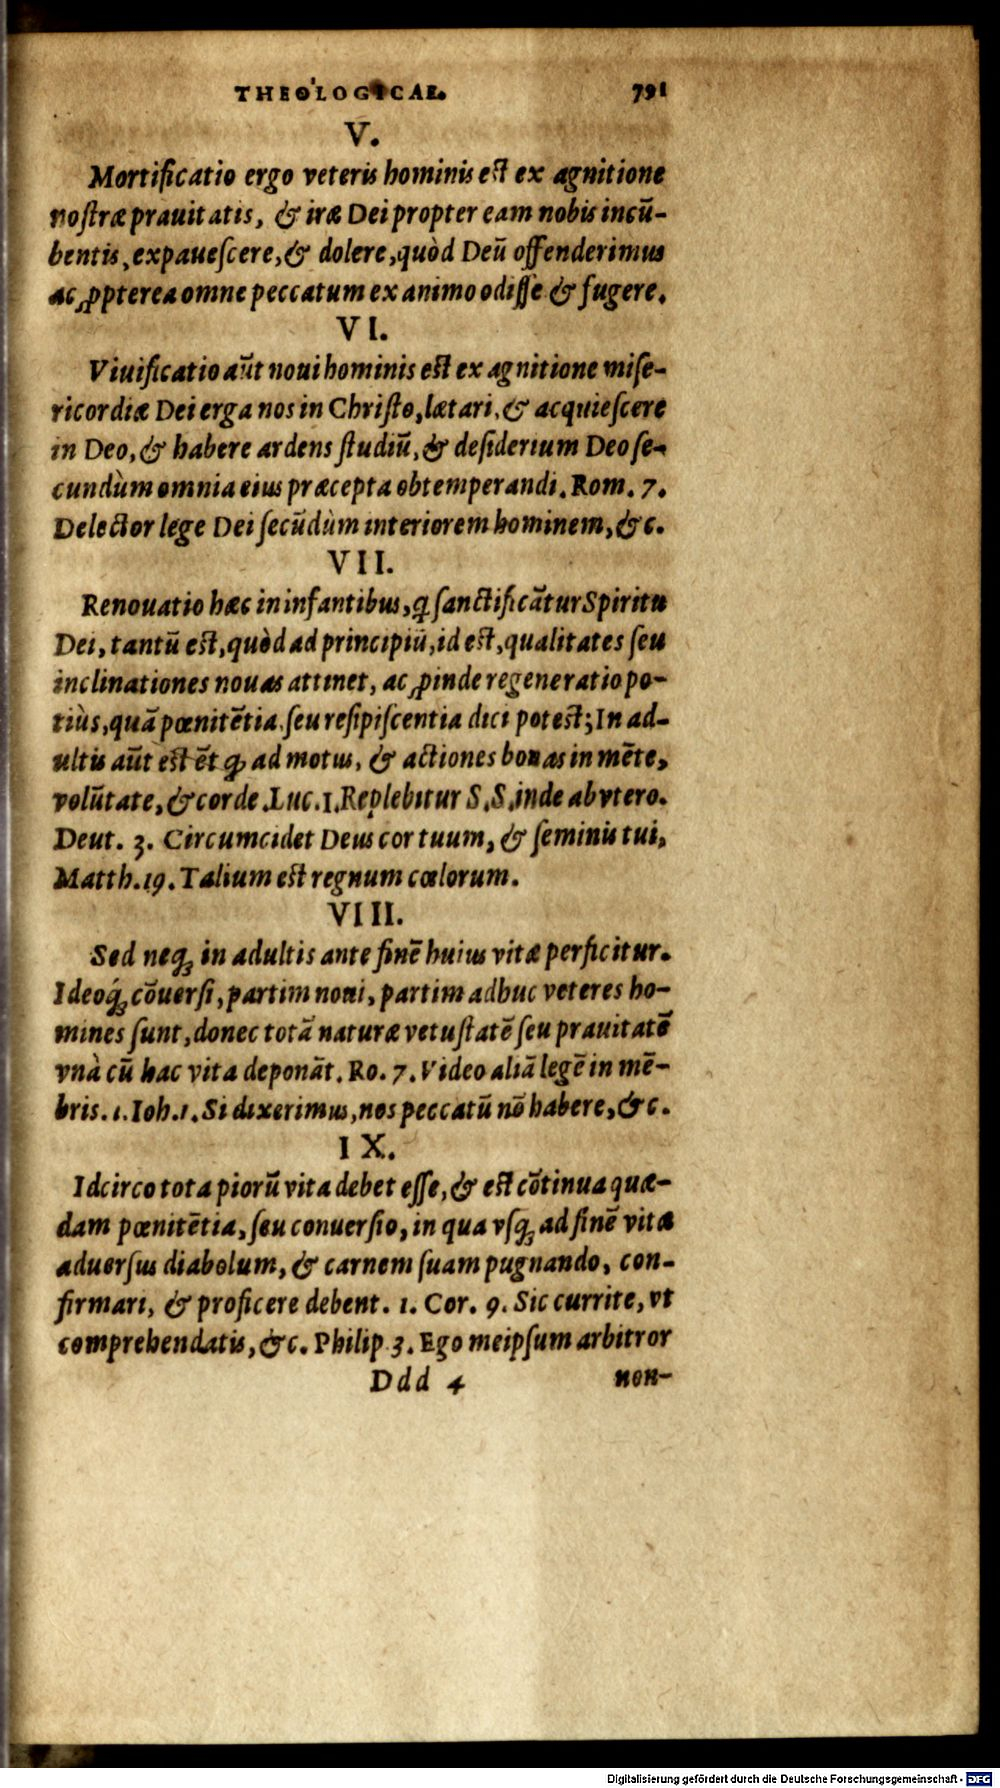 THEOLOGICAE. 791
V.
Mortificatio ergo veteris hominis est ex agnitione
nostræ prauitatis, & iræ Dei propter eam nobis incũ-
bentis, expauescere, & dolere, quòd Deũ offenderimus
ac ꝓpterea omne peccatum ex animo odisse & fugere.
VI.
Viuificatio aũt noui hominis est ex agnitione mise-
ricordiæ Dei erga nos in Christo, lætari, & acquiescere
in Deo, & habere ardens studiũ, & desiderium Deo se-
cundùm omnia eius præcepta obtemperandi. Rom. 7.
Delector lege Dei secũdùm interiorem hominem, &c.
VII.
Renouatio hæc in infantibus, q̃ sanctificãtur Spiritu
Dei, tantũ est, quòd ad principiũ, id est, qualitates seu
inclinationes nouas attinet, ac ꝓinde regeneratio po-
tiùs, quã pœnitẽtia, seu resipiscentia dici potest; In ad-
ultis aũt est ẽt ꝙ ad motus, & actiones bonas in mẽte,
volũtate, & corde. Luc. 1. Replebitur S. S. inde ab vtero.
Deut. 3. Circumcidet Deus cor tuum, & seminis tui,
Matth. 19. Talium est regnum cœlorum.
VIII.
Sed neqꝫ in adultis ante finẽ huius vitæ perficitur.
Ideoq́ꝫ cõuersi, partim noui, partim adhuc veteres ho-
mines sunt, donec totã naturæ vetustatẽ seu prauitatẽ
vnà cũ hac vita deponãt. Ro. 7. Video aliã legẽ in mẽ-
bris. 1. Ioh. 1. Si dixerimus, nos peccatũ nõ habere, &c.
IX.
Idcirco tota piorũ vita debet esse, & est cõtinua quæ-
dam pœnitẽtia, seu conuersio, in qua vsqꝫ ad finẽ vitæ
aduersus diabolum, & carnem suam pugnando, con-
firmari, & proficere debent. 1. Cor. 9. Sic currite, vt
comprehendatis, &c. Philip. 3. Ego meipsum arbitror
Ddd 4 non-
Digitalisierung gefördert durch die Deutsche Forschungsgemeinschaft - DFG